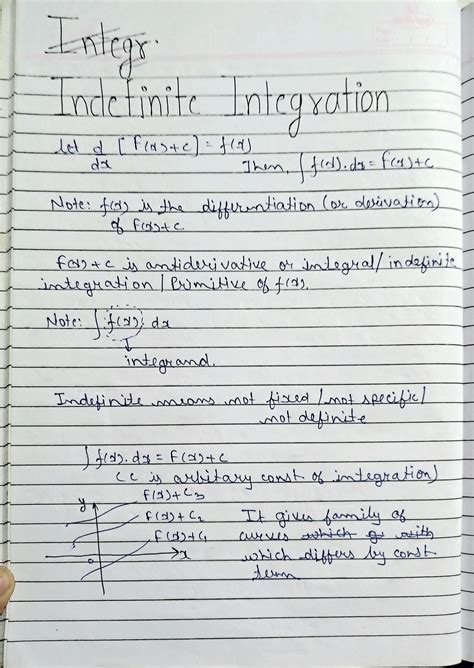 Integr.
Indefinite Integration
let d/dx [F(x)+c] = f(x)
Then, ∫f(x).dx = F(x)+c
Note: f(x) is the differentiation (or derivation)
of F(x)+c
F(x)+c is antiderivative or integral/indefinite
integration/Primitive of f(x).
Note: ∫f(x) dx
integrand.
Indefinite means not fixed/not specific/
not definite
∫f(x).dx = F(x)+c
(c is arbitary const of integration)
F(x)+C3
y
F(x)+C2
F(x)+C1
x
0
It gives family of
curves which
which differs by const
term